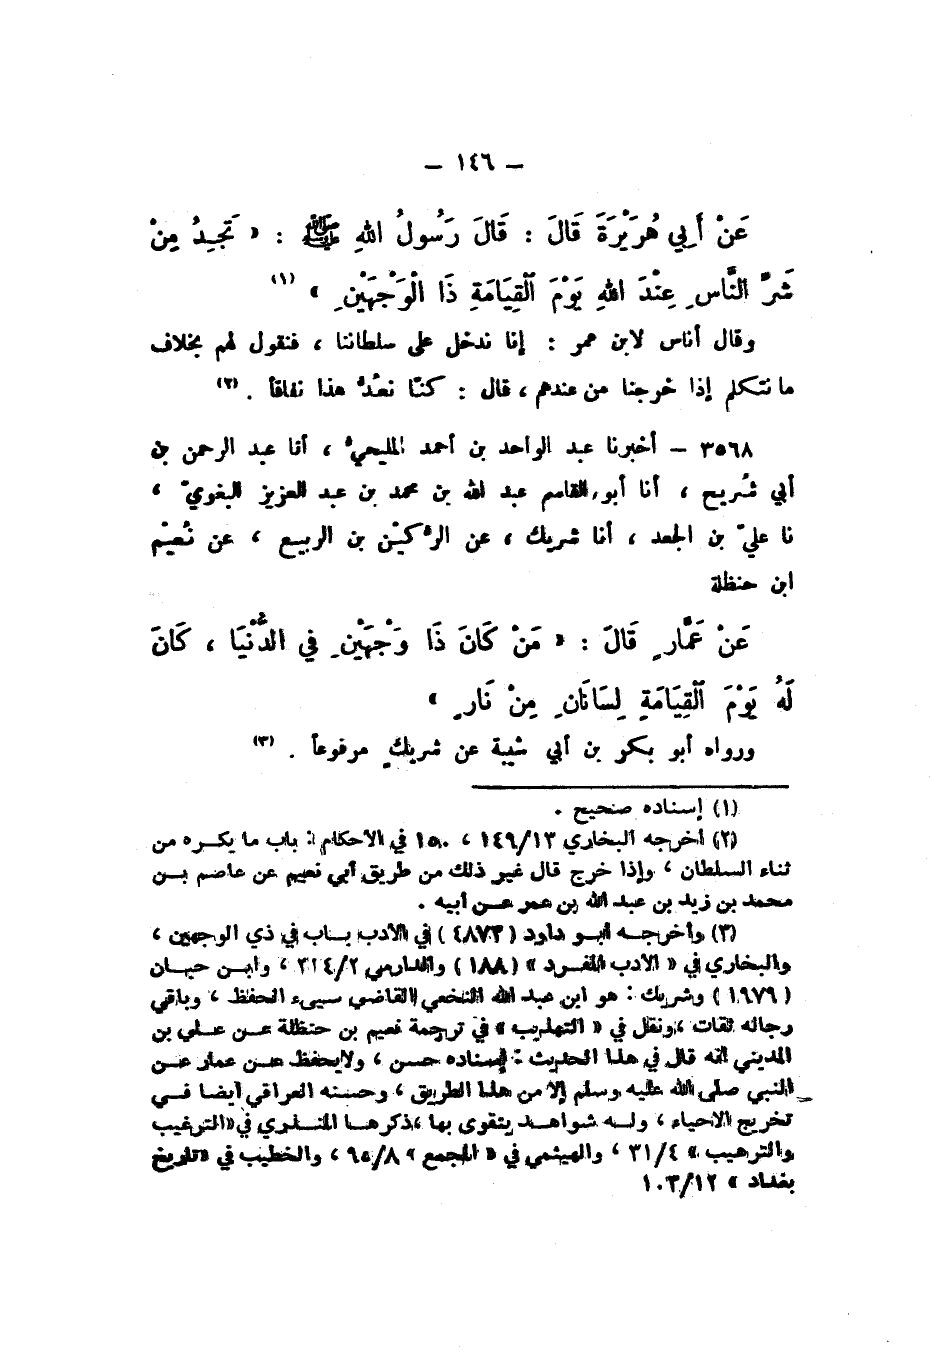 – ١٤٦ –
عَنْ أَبِي هُرَيْرَةَ قَالَ : قَالَ رَسُولُ اللهِ ﷺ : « تَجِدُ مِنْ
شَرِّ النَّاسِ عِنْدَ اللهِ يَوْمَ الْقِيَامَةِ ذَا الْوَجْهَيْنِ » (١)
وقال أناس لابن عمر : إنا ندخل على سلطاننا ، فنقول لهم بخلاف
ما نتكلم إذا خرجنا من عندهم ، قال : كنّا نعُدُّ هذا نفاقاً . (٢)
٣٥٦٨ – أخبرنا عبد الواحد بن أحمد المليحيُّ ، أنا عبد الرحمن بن
أبي شُريح ، أنا أبو القاسم عبد الله بن محمد بن عبد العزيز البغويّ ،
نا عليّ بن الجعد ، أنا شريك ، عن الرُّكَيْن بن الربيع ، عن نُعَيْم
ابن حنظلة
عَنْ عَمَّارٍ قَالَ : « مَنْ كَانَ ذَا وَجْهَيْنِ فِي الدُّنْيَا ، كَانَ
لَهُ يَوْمَ الْقِيَامَةِ لِسَانَانِ مِنْ نَارٍ »
ورواه أبو بكر بن أبي شيبة عن شريكٍ مرفوعاً . (٣)
(١) إسناده صحيح .
(٢) أخرجه البخاري ١٤٩/١٣ ، ١٥٠ في الأحكام : باب ما يكره من
ثناء السلطان ، وإذا خرج قال غير ذلك من طريق أبي نعيم عن عاصم بن
محمد بن زيد بن عبد الله بن عمر عن أبيه .
(٣) وأخرجه أبو داود ( ٤٨٧٣ ) في الأدب باب في ذي الوجهين ،
والبخاري في « الأدب المفرد » ( ١٨٨ ) والدارمي ٣١٤/٢ ، وابن حبان
( ١٩٧٩ ) وشريك : هو ابن عبد الله النخعي القاضي سيىء الحفظ ، وباقي
رجاله ثقات ، ونقل في « التهذيب » في ترجمة نعيم بن حنظلة عن علي بن
المديني أنه قال في هذا الحديث : إسناده حسن ، ولا يحفظ عن عمار عن
النبي صلى الله عليه وسلم إلا من هذا الطريق ، وحسنه العراقي أيضا في
تخريج الاحياء ، وله شواهد يتقوى بها ، ذكرها المنذري في « الترغيب
والترهيب » ٣١/٤ ، والهيثمي في « المجمع » ٩٥/٨ ، والخطيب في « تاريخ
بغداد » ١٠٣/١٢